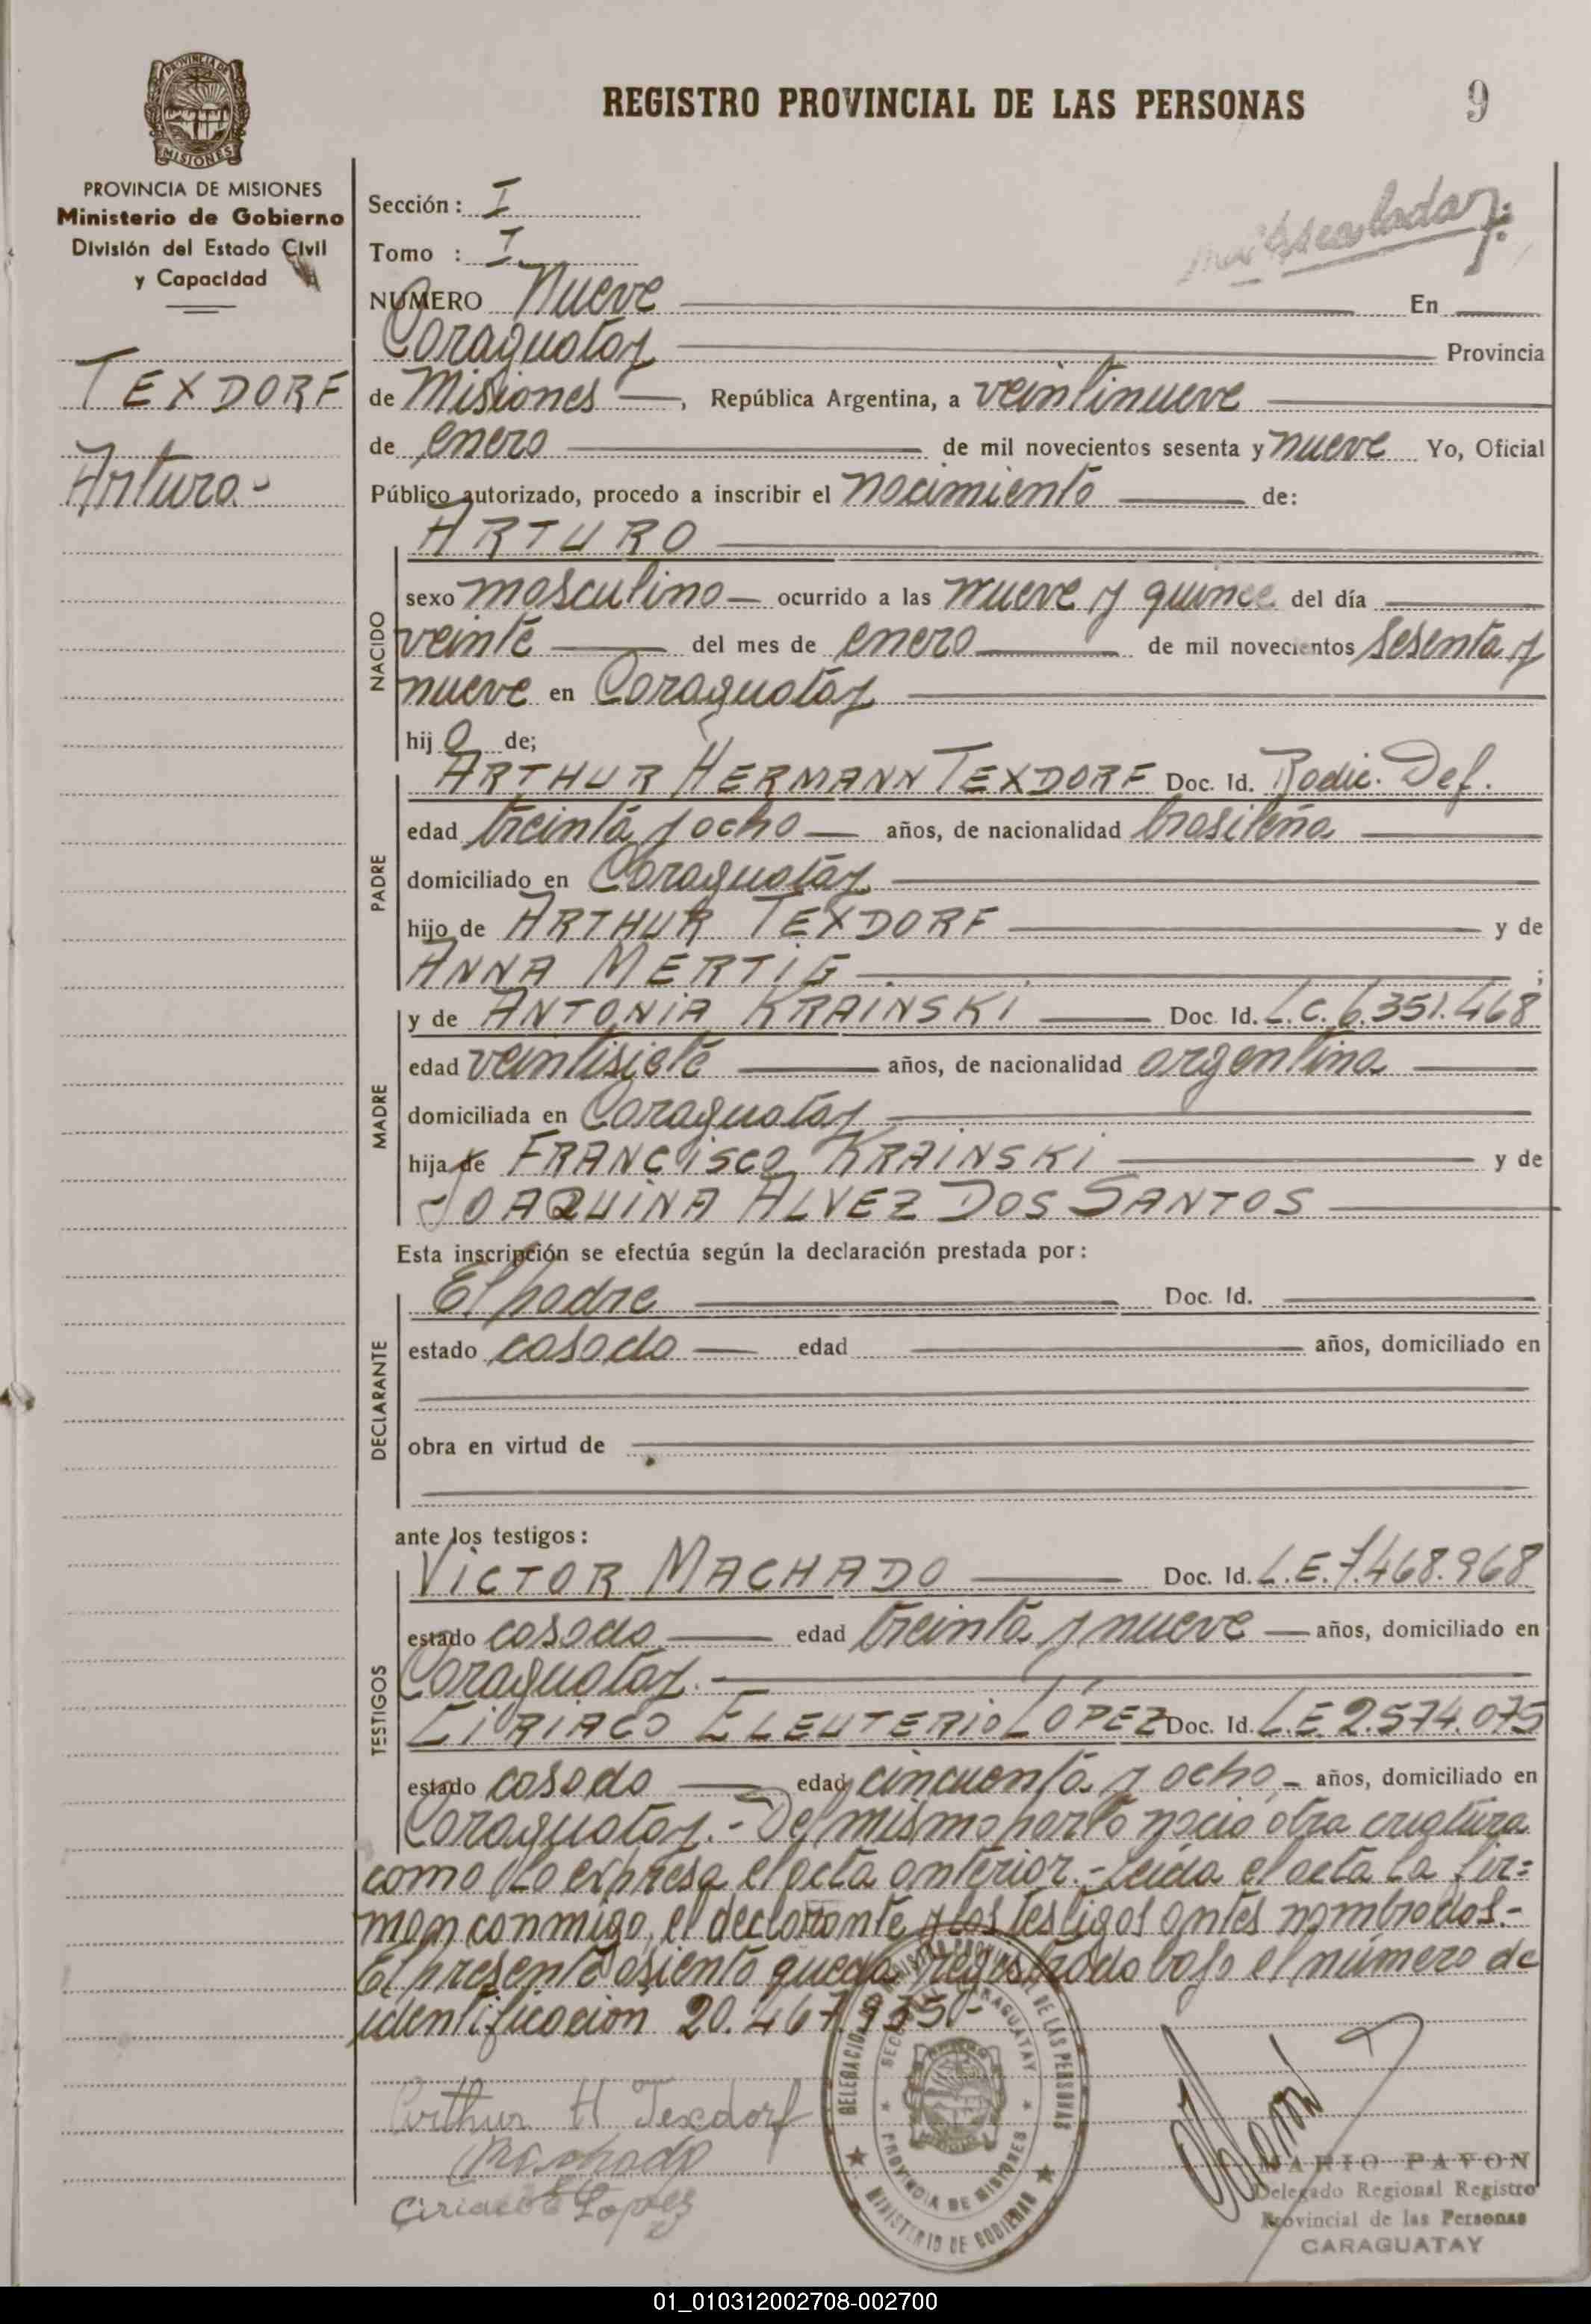 REGISTRO PROVINCIAL DE LAS PERSONAS
9
PROVINCIA DE MISIONES
MISIONES
PROVINCIA DE MISIONES
Ministerio de Gobierno
División del Estado Civil
y Capacidad
TEXDORF
Arturo-
Sección: I
Tomo : I
NUMERO Nueve En
Caraguatay Provincia
de Misiones, República Argentina, a veintinueve
de enero de mil novecientos sesenta y nueve Yo, Oficial
Público autorizado, procedo a inscribir el nacimiento de:
NACIDO
ARTURO
sexo masculino ocurrido a las nueve y quince del día
veinte del mes de enero de mil novecientos sesenta y
nueve en Caraguatay
hijo de;
PADRE
ARTHUR HERMANN TEXDORF Doc. Id. Radic. Def.
edad treinta y ocho años, de nacionalidad brasileña
domiciliado en Caraguatay
hijo de ARTHUR TEXDORF y de
ANNA MERTIG ;
MADRE
y de ANTONIA KRAINSKI Doc. Id. L.C. 6.351.468
edad veintisiete años, de nacionalidad argentina
domiciliada en Caraguatay
hija de FRANCISCO KRAINSKI y de
JOAQUINA ALVEZ DOS SANTOS
Esta inscripción se efectúa según la declaración prestada por:
DECLARANTE
El padre Doc. Id.
estado casado edad años, domiciliado en
obra en virtud de
ante los testigos:
TESTIGOS
VICTOR MACHADO Doc. Id. L.E. 7.468.968
estado casado edad treinta y nueve años, domiciliado en
Caraguatay.
CIRIACO ELEUTERIO LÓPEZ Doc. Id. L.E. 2.574.075
estado casado edad cincuenta y ocho años, domiciliado en
Caraguatay.- Del mismo parto nació otra criatura
como lo expresa el acta anterior.- Leída el acta la fir=
man conmigo, el declarante y los testigos antes nombrados.-
El presente asiento queda registrado bajo el número de
identificación 20.467.935.-
Arthur H Texdorf
Machado
Ciriaco E Lopez
DELEGACION REGISTRO PROVINCIAL DE LAS PERSONAS
SECCION CARAGUATAY
PROVINCIA DE MISIONES
MINISTERIO DE GOBIERNO
MARIO PAVON
Delegado Regional Registro
Provincial de las Personas
CARAGUATAY
01_010312002708-002700